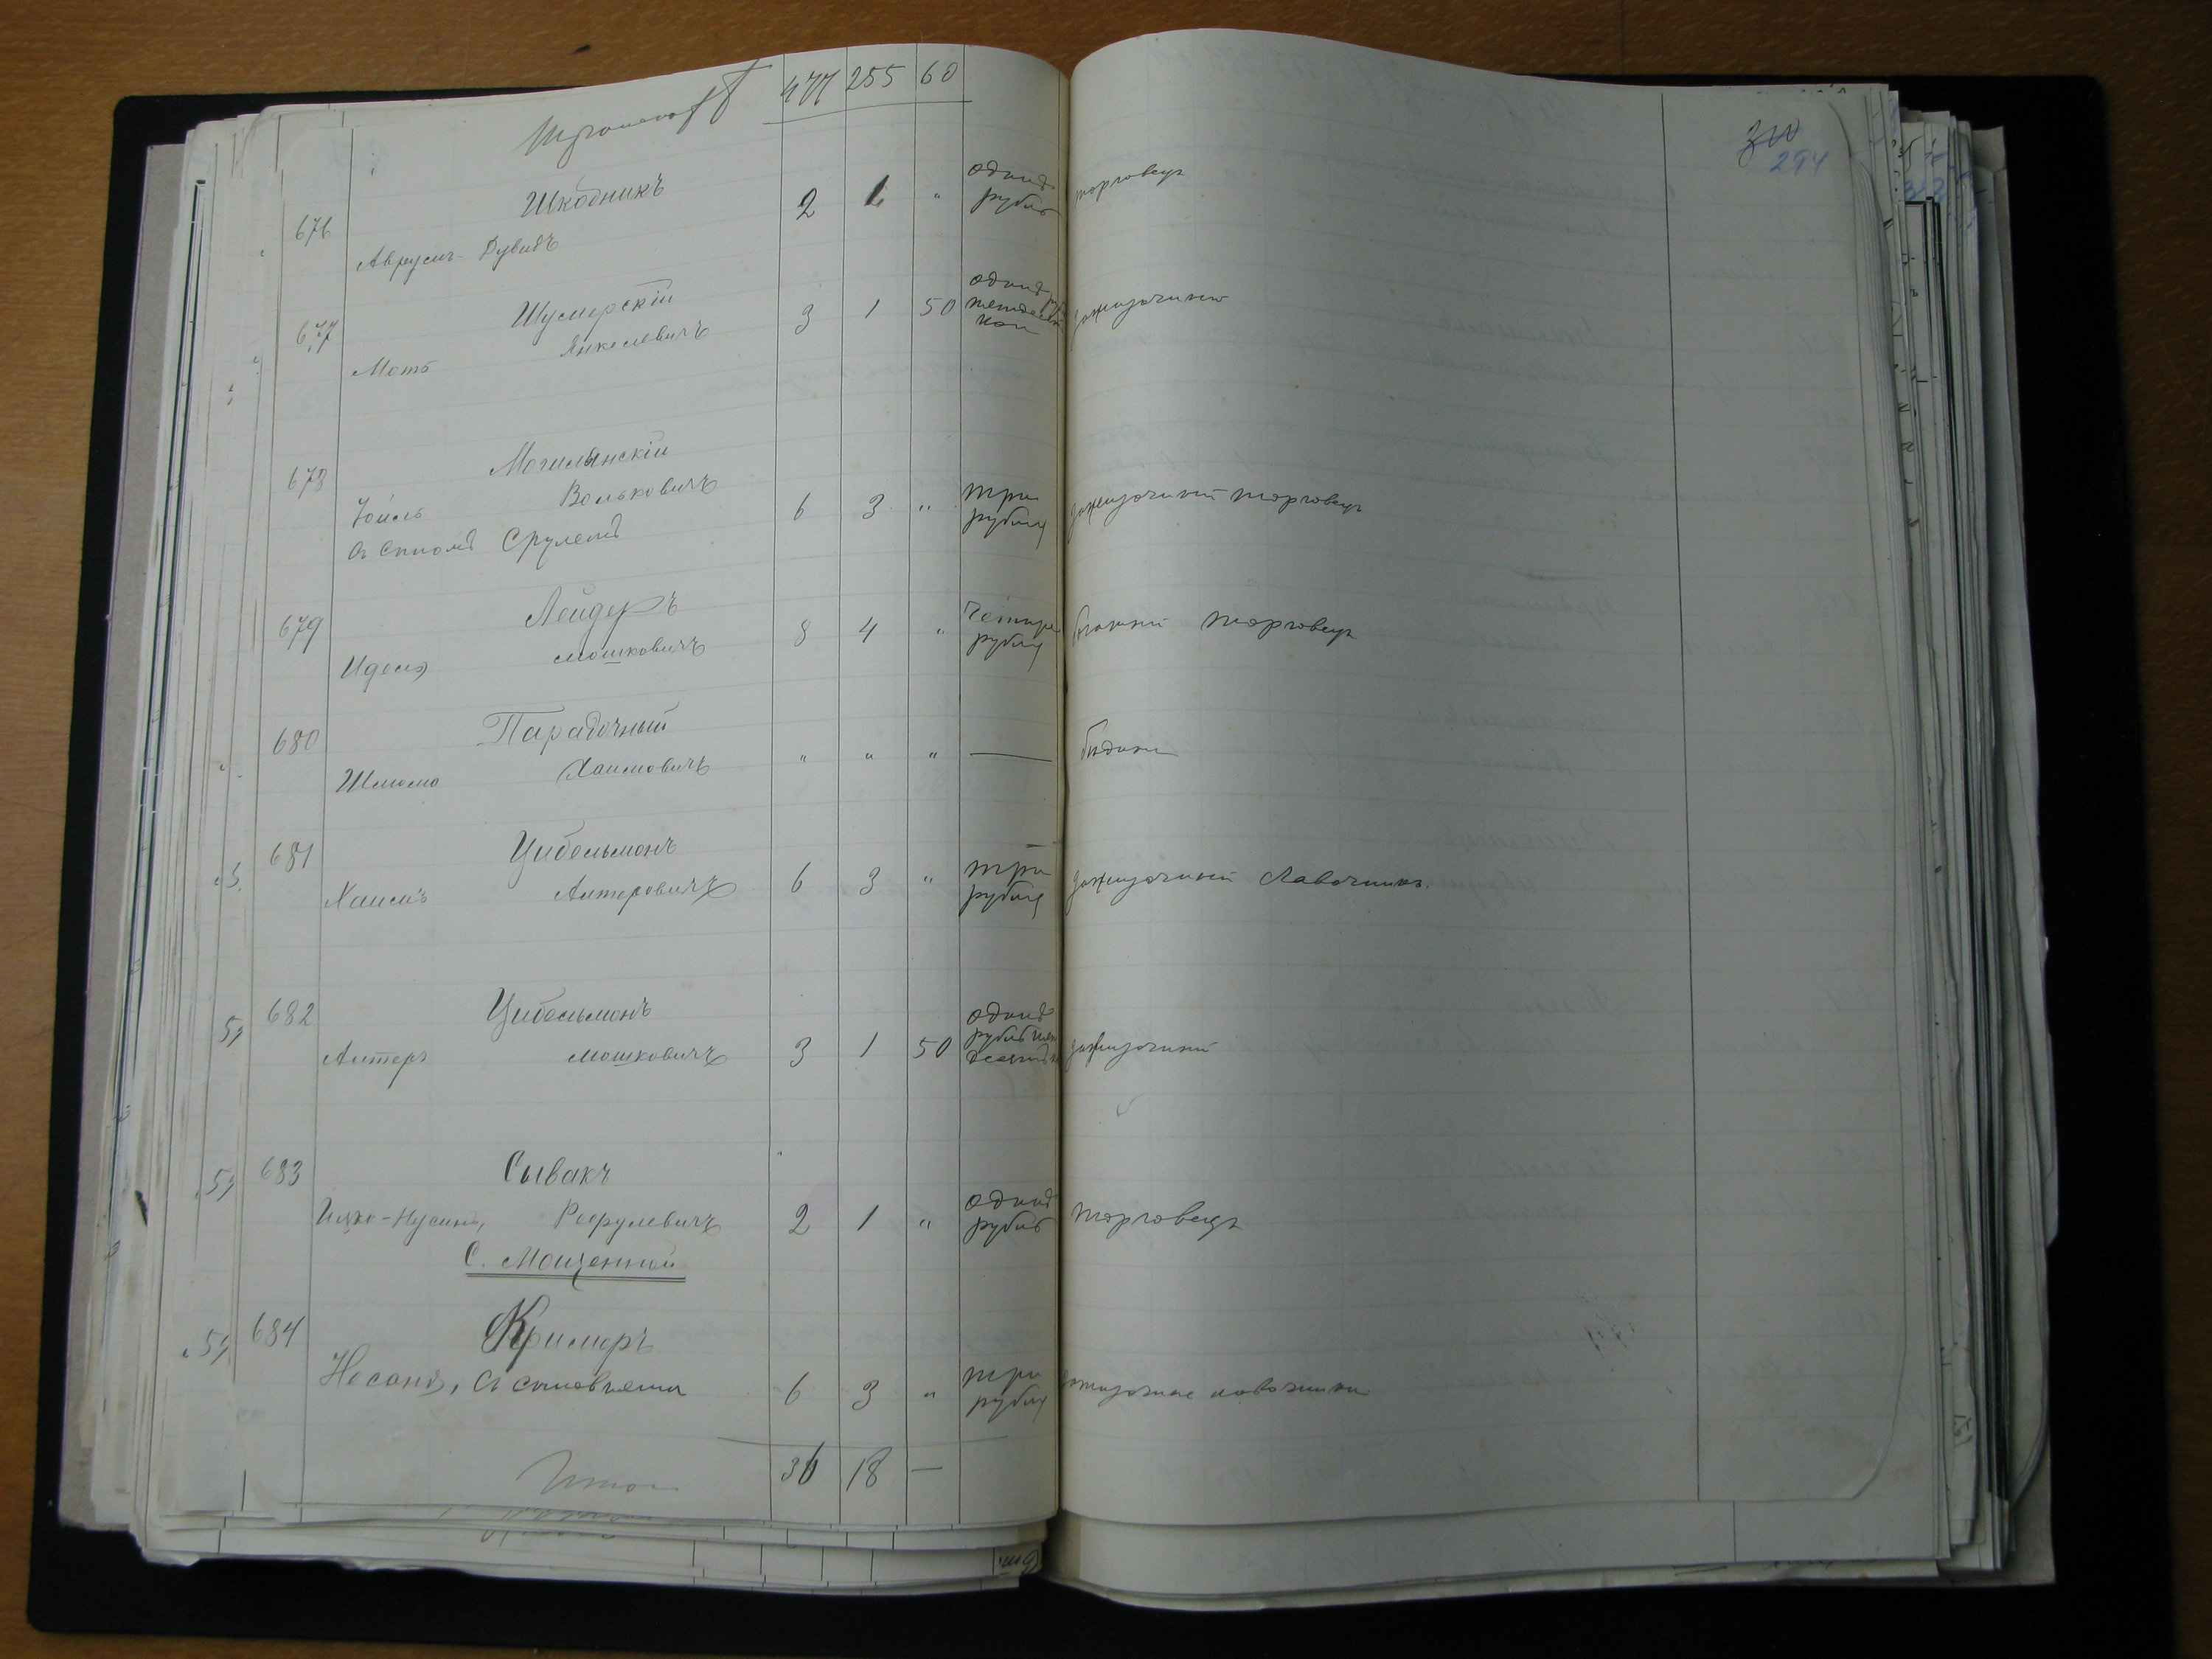 477 255 60
294
676 Шкодникъ 2 1 " одинъ торговецъ
Авреумъ-Дувидъ рубль
677 Шумерскій 3 1 50 одинъ руб зажиточный
Мотъ Янкелевичъ пятьдесят коп
678 Могилынскій
Іойль Вольковичъ 6 3 " три зажиточный торговецъ
съ сыномъ Срулемъ рубля
679 Лейдеръ 8 4 " четыре богатый торговецъ
Идель Мошковичъ рубля
680 Парадочный " " " — бѣдный
Шлиома Хаимовичъ
681 Цибельманъ три
Хаимъ Антеровичъ 6 3 " рубля зажиточный лавочникъ.
682 Цибельманъ одинъ
Антеръ Мошковичъ 3 1 50 рубль зажиточный
5, 683 Сывакъ одинъ
Ицко-Нусинъ, Рафулевичъ 2 1 " рубль торговецъ
С. Мощенной
5, 684 Кримеръ три
Несанъ, съ сыновьями 6 3 " рубля зажиточные лавочники
36 18 —